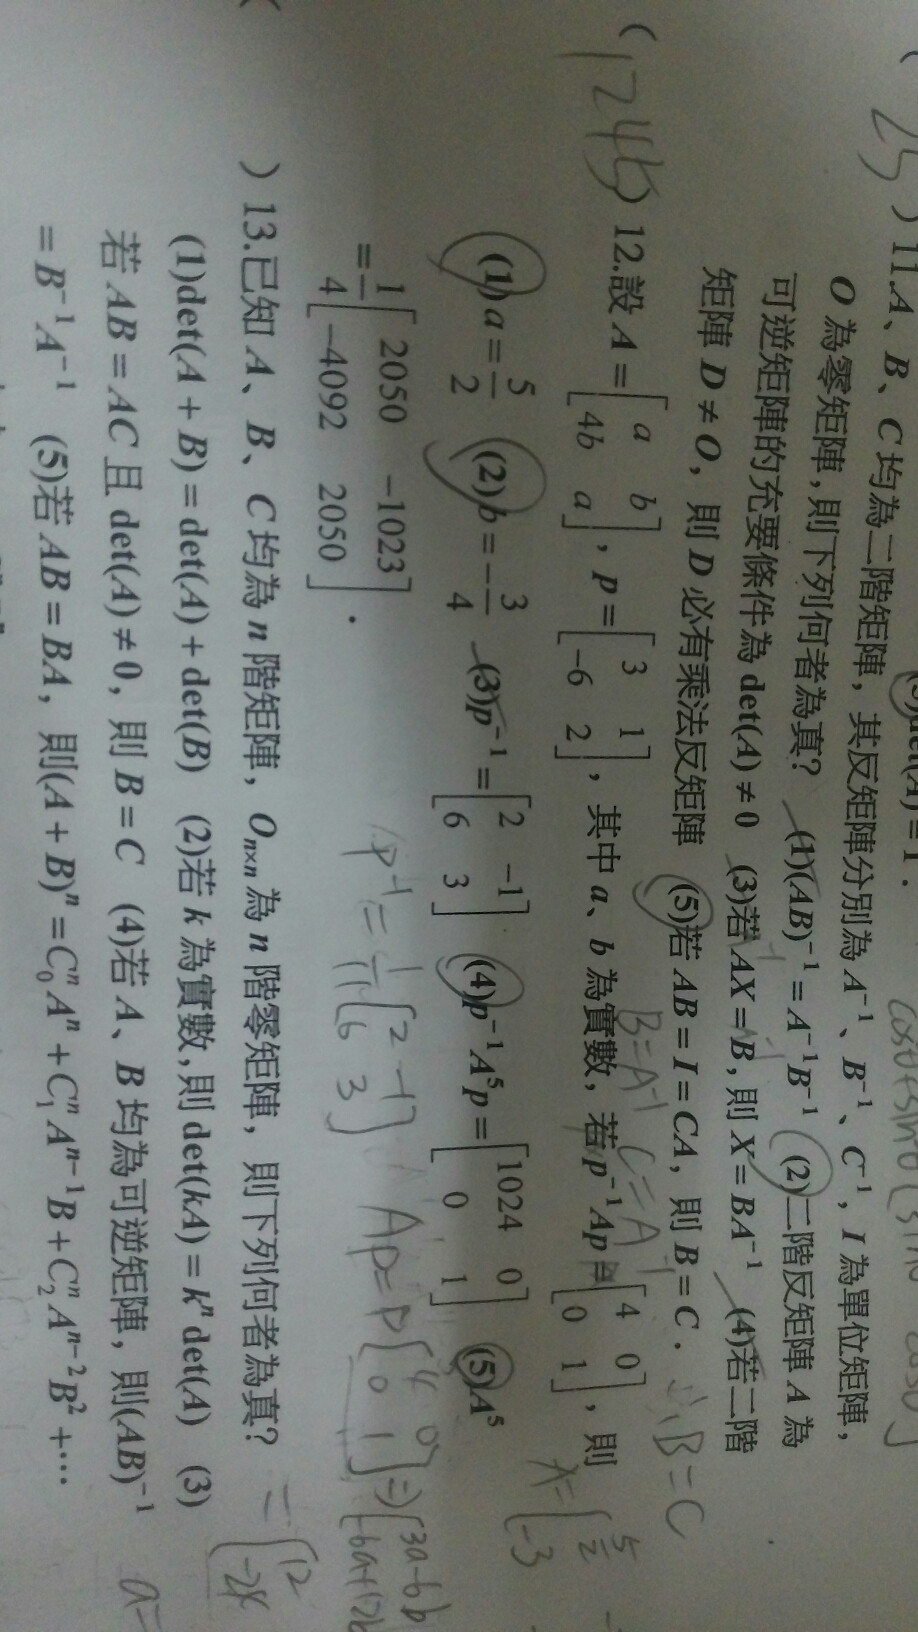 (5)det(A) = 1．
25 ) 11.A、B、C 均為二階矩陣，其反矩陣分別為 A⁻¹、B⁻¹、C⁻¹，I 為單位矩陣，
O 為零矩陣，則下列何者為真？ (1)(AB)⁻¹ = A⁻¹B⁻¹ (2)二階反矩陣 A 為
可逆矩陣的充要條件為 det(A) ≠ 0 (3)若 AX = B，則 X = BA⁻¹ (4)若二階
矩陣 D ≠ O，則 D 必有乘法反矩陣 (5)若 AB = I = CA，則 B = C．
B=A⁻¹ C=A⁻¹ ∴B=C
(1245) 12.設 A = [a b; 4b a]，p = [3 1; -6 2]，其中 a、b 為實數，若 p⁻¹Ap = [4 0; 0 1]，則
(1)a = 5/2 (2)b = -3/4 (3)p⁻¹ = [2 -1; 6 3] (4)p⁻¹A⁵p = [1024 0; 0 1] (5)A⁵
= 1/4 [2050 -1023; -4092 2050]．
p⁻¹ = 1/12 [2 -1; 6 3] Ap = p [4 0; 0 1] ⇒ [3a-6b
) 13.已知 A、B、C 均為 n 階矩陣，Oₙₓₙ 為 n 階零矩陣，則下列何者為真？
(1)det(A + B) = det(A) + det(B) (2)若 k 為實數，則 det(kA) = kⁿ det(A) (3)
若 AB = AC 且 det(A) ≠ 0，則 B = C (4)若 A、B 均為可逆矩陣，則(AB)⁻¹
= B⁻¹A⁻¹ (5)若 AB = BA，則(A + B)ⁿ = C₀ⁿAⁿ + C₁ⁿAⁿ⁻¹B + C₂ⁿAⁿ⁻²B² + …